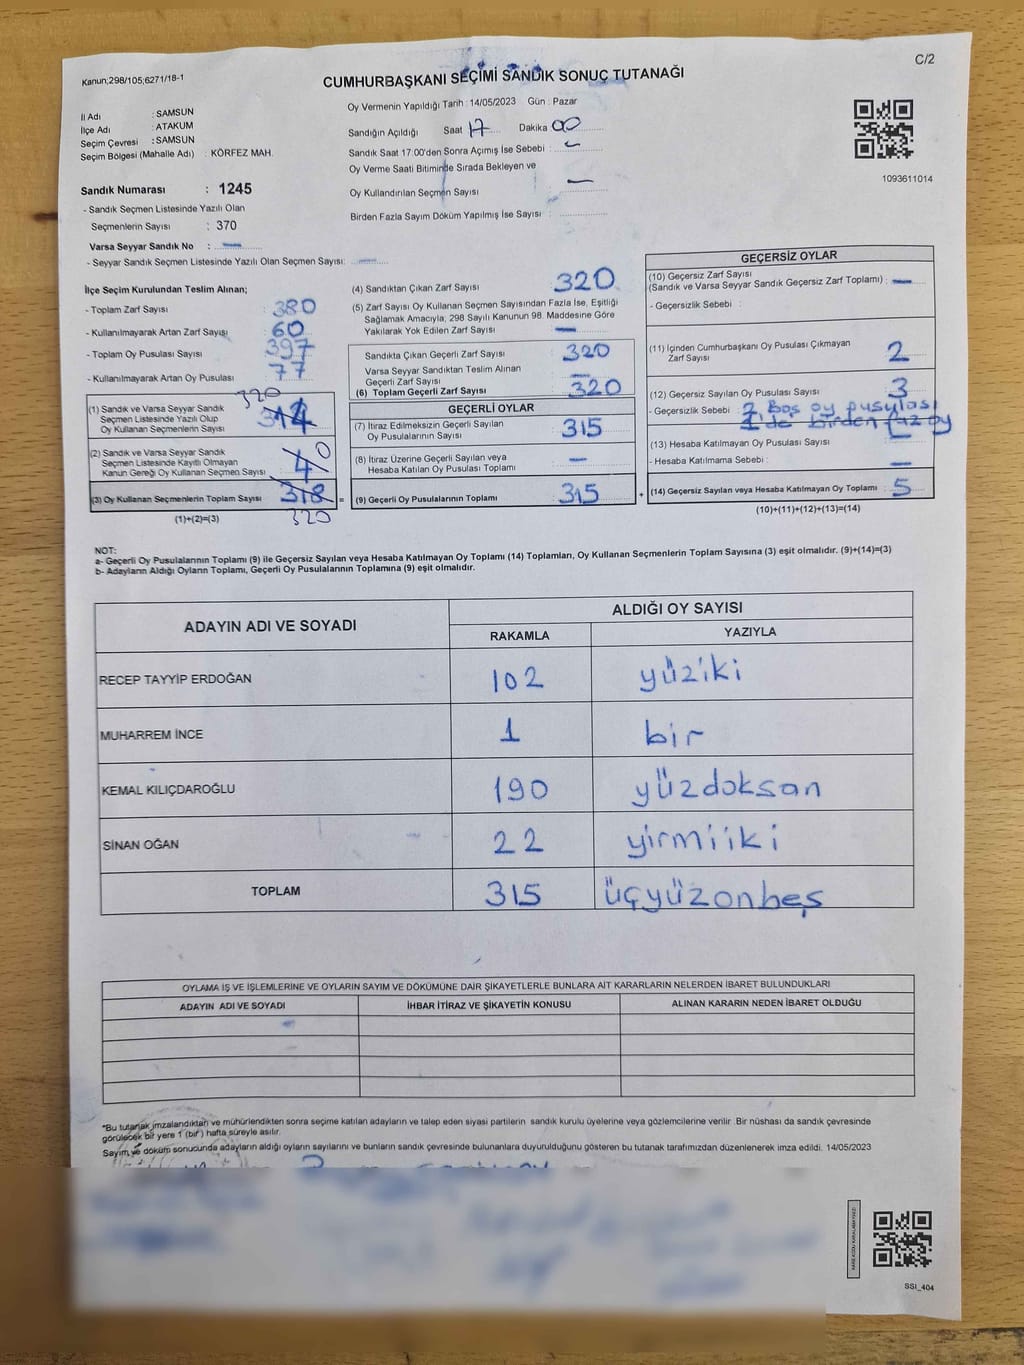 Kanun;298/105;6271/18-1
C/2
CUMHURBAŞKANI SEÇİMİ SANDIK SONUÇ TUTANAĞI
İl Adı : SAMSUN
İlçe Adı : ATAKUM
Seçim Çevresi : SAMSUN
Seçim Bölgesi (Mahalle Adı) : KÖRFEZ MAH.
Sandık Numarası : 1245
- Sandık Seçmen Listesinde Yazılı Olan
Seçmenlerin Sayısı : 370
Varsa Seyyar Sandık No : —
- Seyyar Sandık Seçmen Listesinde Yazılı Olan Seçmen Sayısı: —
Oy Vermenin Yapıldığı Tarih : 14/05/2023 Gün : Pazar
Sandığın Açıldığı Saat 17 Dakika 00
Sandık Saat 17:00'den Sonra Açımış İse Sebebi : —
Oy Verme Saati Bitiminde Sırada Bekleyen ve
Oy Kullandırılan Seçmen Sayısı —
Birden Fazla Sayım Döküm Yapılmış İse Sayısı :
1093611014
İlçe Seçim Kurulundan Teslim Alınan;
- Toplam Zarf Sayısı : 380
- Kullanılmayarak Artan Zarf Sayısı : 60
- Toplam Oy Pusulası Sayısı : 397
- Kullanılmayarak Artan Oy Pusulası : 77
320
(1) Sandık ve Varsa Seyyar Sandık
Seçmen Listesinde Yazılı Olup
Oy Kullanan Seçmenlerin Sayısı 314
(2) Sandık ve Varsa Seyyar Sandık
Seçmen Listesinde Kayıtlı Olmayan
Kanun Gereği Oy Kullanan Seçmen Sayısı 4 0
(3) Oy Kullanan Seçmenlerin Toplam Sayısı 318 =
(1)+(2)=(3) 320
(4) Sandıktan Çıkan Zarf Sayısı : 320
(5) Zarf Sayısı Oy Kullanan Seçmen Sayısından Fazla İse, Eşitliği
Sağlamak Amacıyla; 298 Sayılı Kanunun 98. Maddesine Göre
Yakılarak Yok Edilen Zarf Sayısı : —
Sandıkta Çıkan Geçerli Zarf Sayısı : 320
Varsa Seyyar Sandıktan Teslim Alınan
Geçerli Zarf Sayısı
(6) Toplam Geçerli Zarf Sayısı : 320
GEÇERLİ OYLAR
(7) İtiraz Edilmeksizin Geçerli Sayılan
Oy Pusulalarının Sayısı : 315
(8) İtiraz Üzerine Geçerli Sayılan veya
Hesaba Katılan Oy Pusulası Toplamı : —
(9) Geçerli Oy Pusulalarının Toplamı : 315 +
GEÇERSİZ OYLAR
(10) Geçersiz Zarf Sayısı
(Sandık ve Varsa Seyyar Sandık Geçersiz Zarf Toplamı) : —
- Geçersizlik Sebebi :
(11) İçinden Cumhurbaşkanı Oy Pusulası Çıkmayan
Zarf Sayısı : 2
(12) Geçersiz Sayılan Oy Pusulası Sayısı : 3
- Geçersizlik Sebebi : 2 Boş oy pusulası
1 de birden faz oy
(13) Hesaba Katılmayan Oy Pusulası Sayısı : —
- Hesaba Katılmama Sebebi : —
(14) Geçersiz Sayılan veya Hesaba Katılmayan Oy Toplamı : 5
(10)+(11)+(12)+(13)=(14)
NOT:
a- Geçerli Oy Pusulalarının Toplamı (9) ile Geçersiz Sayılan veya Hesaba Katılmayan Oy Toplamı (14) Toplamları, Oy Kullanan Seçmenlerin Toplam Sayısına (3) eşit olmalıdır. (9)+(14)=(3)
b- Adayların Aldığı Oyların Toplamı, Geçerli Oy Pusulalarının Toplamına (9) eşit olmalıdır.
ADAYIN ADI VE SOYADI ALDIĞI OY SAYISI
RAKAMLA YAZIYLA
RECEP TAYYİP ERDOĞAN 102 yüziki
MUHARREM İNCE 1 bir
KEMAL KILIÇDAROĞLU 190 yüzdoksan
SİNAN OĞAN 22 yirmiiki
TOPLAM 315 üçyüzonbeş
OYLAMA İŞ VE İŞLEMLERİNE VE OYLARIN SAYIM VE DÖKÜMÜNE DAİR ŞİKAYETLERLE BUNLARA AİT KARARLARIN NELERDEN İBARET BULUNDUKLARI
ADAYIN ADI VE SOYADI İHBAR İTİRAZ VE ŞİKAYETİN KONUSU ALINAN KARARIN NEDEN İBARET OLDUĞU
*Bu tutanak imzalandıktan ve mühürlendikten sonra seçime katılan adayların ve talep eden siyasi partilerin sandık kurulu üyelerine veya gözlemcilerine verilir. Bir nüshası da sandık çevresinde
görülecek bir yere 1 (bir) hafta süreyle asılır.
Sayım ve döküm sonucunda adayların aldığı oyların sayılarını ve bunların sandık çevresinde bulunanlara duyurulduğunu gösteren bu tutanak tarafımızdan düzenlenerek imza edildi. 14/05/2023
SSI_404